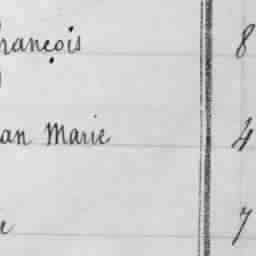 rançois 8
an Marie 4
e 7